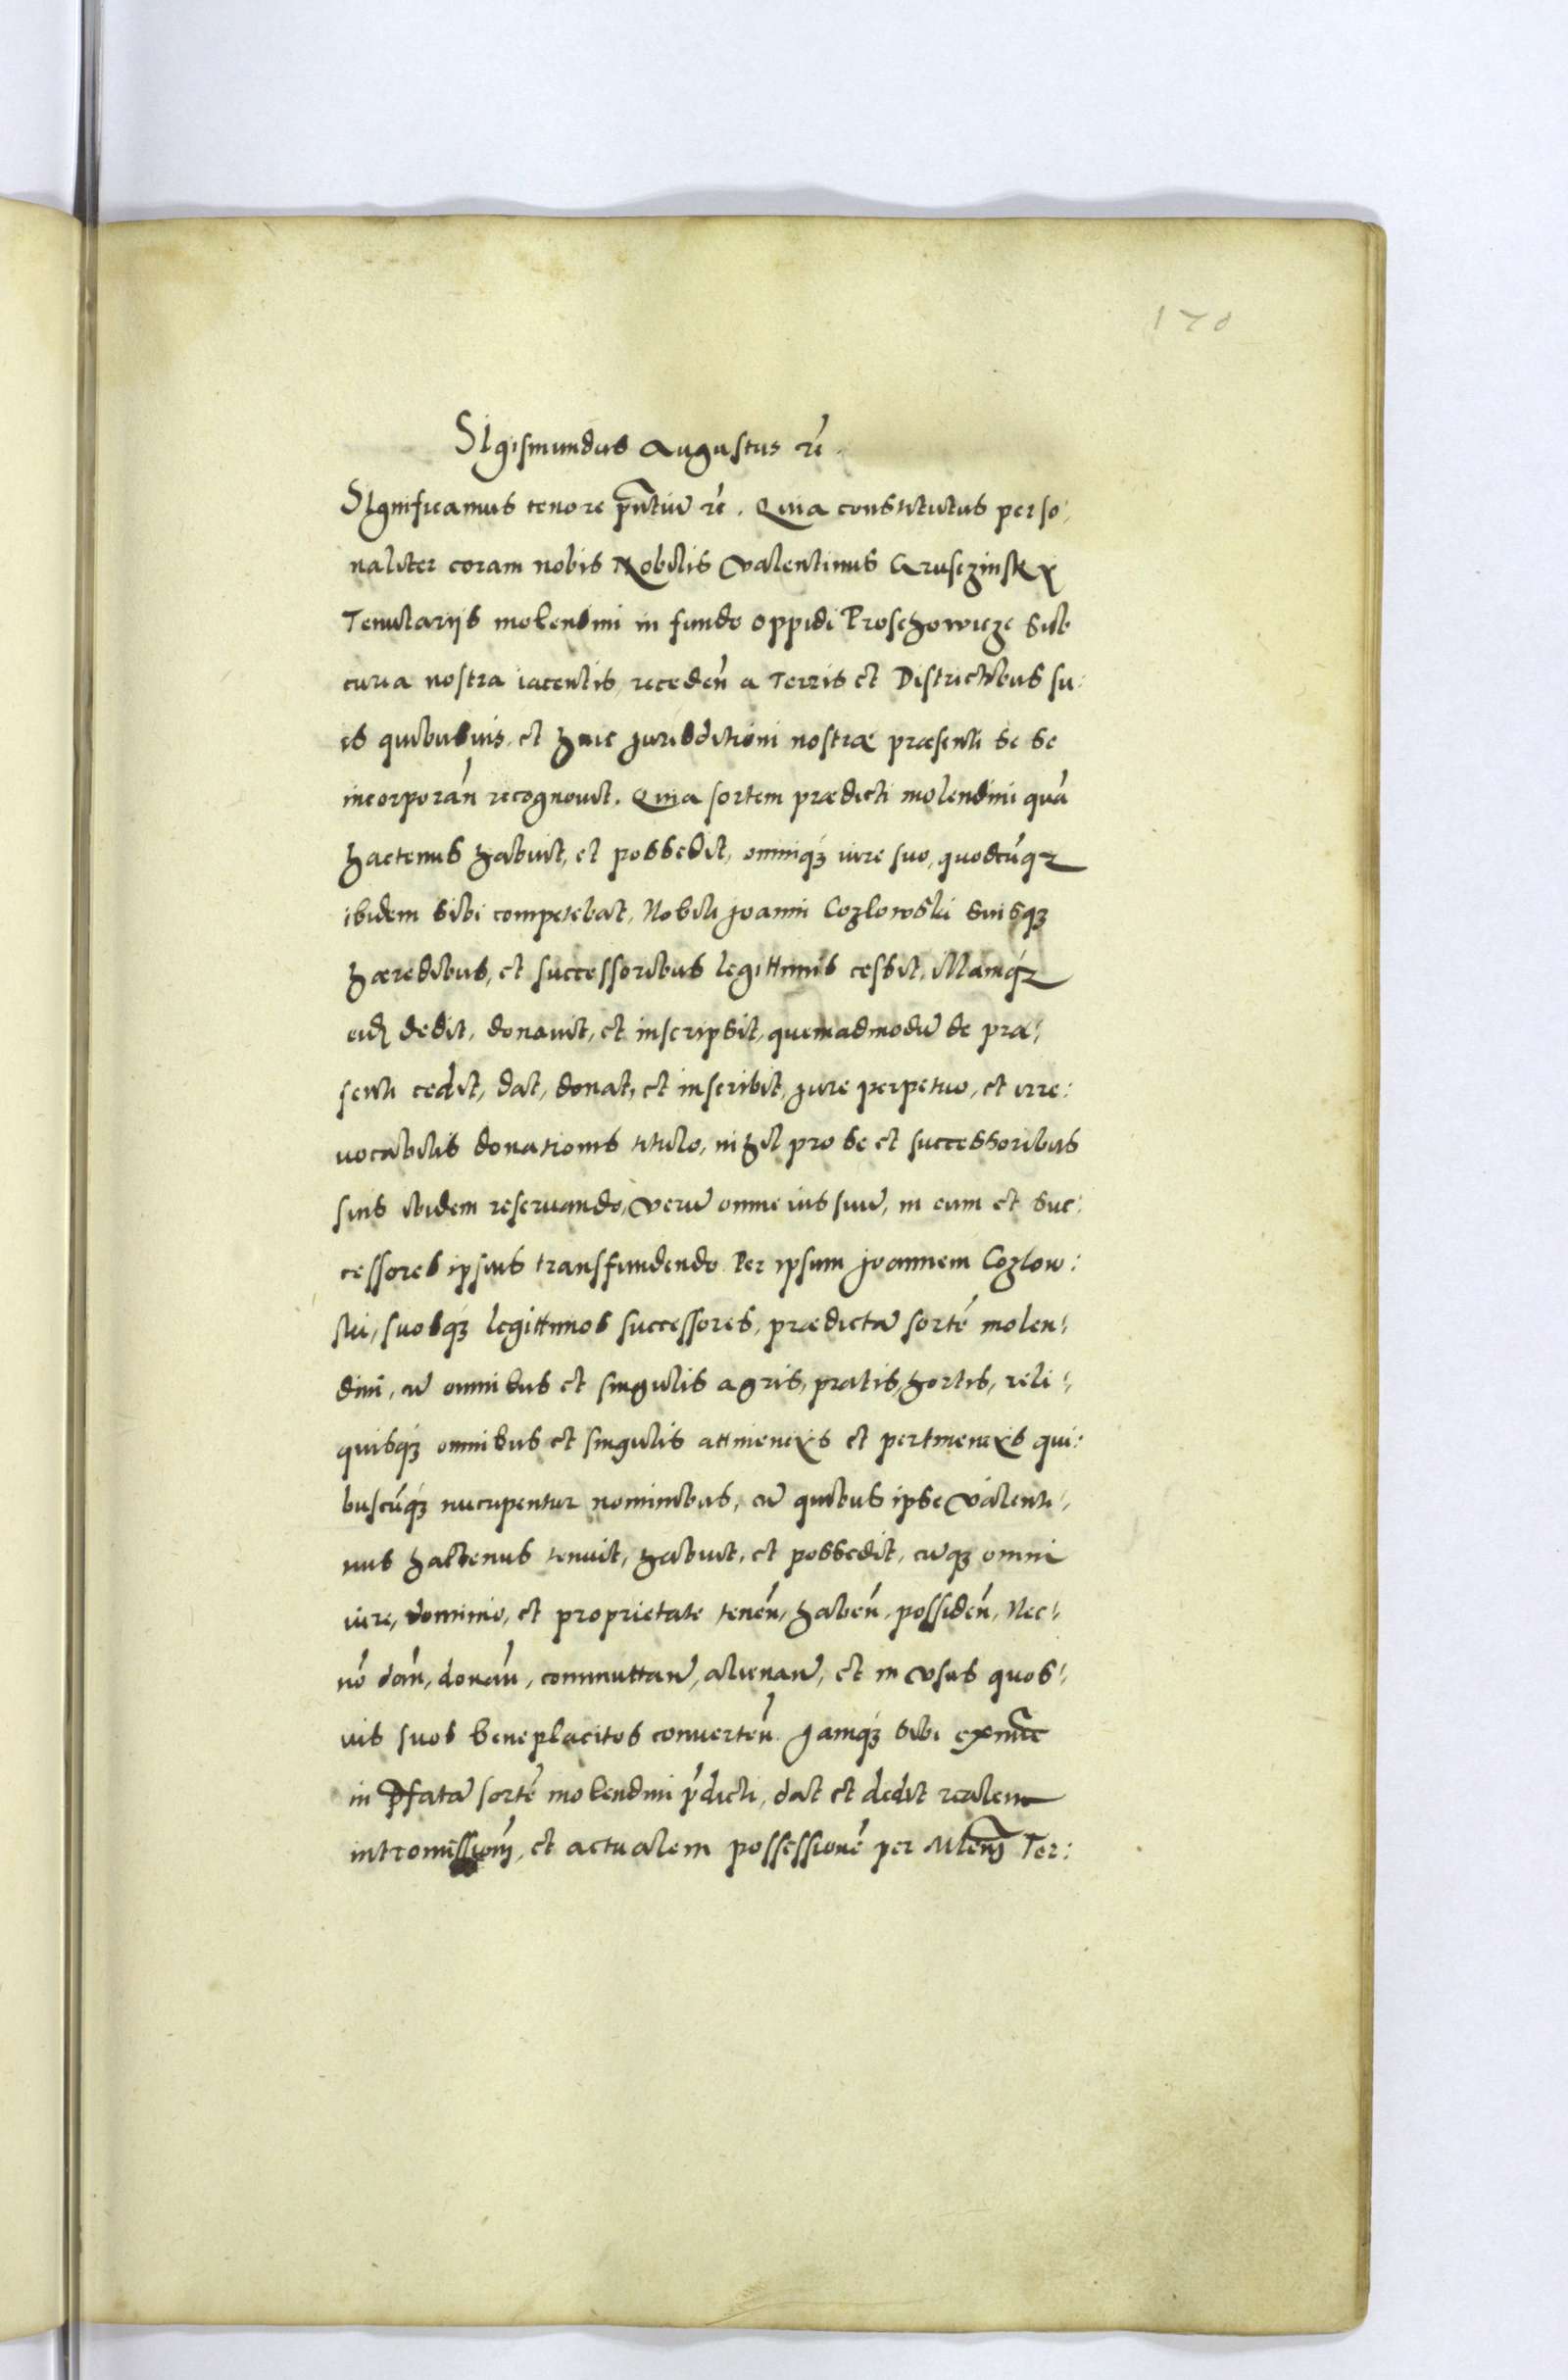 170
SIgismundus Augustus rē.
SIgnificamus tenore pn̄tiū rē. Quia constitutus perso:
naliter coram nobis Nobilis Valentinus Gruszinsky
Tenutarijs molendini in fundo oppidi Proschowicze sub
curia nostra iacentis, recedeñ a Terris et Districtibus su:
is quibusuis, et huic jurisditioni nostræ præsenti se se
incorporañ recognouit. Quia sortem prædicti molendini quā
hactenus habuit, et possedit, omniq́ȝ iure suo, quodcūqȝ
ibidem sibi competebat, Nobili joanni Cozlowski suisqȝ
hæredibus, et successoribus legittimis cessit, illamq́ȝ
eidͫ dedit, donauit, et inscripsit, quemadmodū de præ:
senti cedit, dat, donat, et inscribit, jure perpetuo, et irre:
uocabilis donationis titulo, nihil pro se et successoribus
suis ibidem reseruando, verū omne ius suū, in eum et suc:
cessores ipsius transfundendo. Per ipsum joannem Cozlow:
ski, suosq́ȝ legittimos successores, prædictā sortē molen:
dini, cū omnibus et singulis agris, pratis, hortis, reli:
quisq́ȝ omnibus et singulis attinencijs et pertinencijs qui:
buscūq́ȝ nucupentur nominibus, cū quibus ipse Valenti:
nus hactenus tenuit, habuit, et possedit, cūqȝ omni
iure, dominio, et proprietate teneñ, habeñ, possideñ, Nec:
nō dañ, donañ, commuttañ, alienañ, et in vsus quos:
uis suos beneplacitos conuerteñ. jamq́ȝ sibi exnūc
in p̄fatā sortē molendini p̄dicti, dat et dedit realem
intromissionͫ, et actualem possessionē per Mlem̄ Ter: